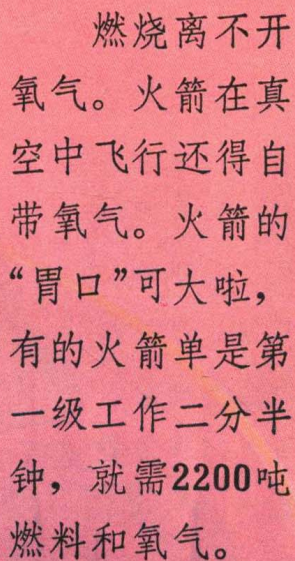 燃烧离不开
氧气。火箭在真
空中飞行还得自
带氧气。火箭的
“胃口”可大啦，
有的火箭单是第
一级工作二分半
钟，就需2200吨
燃料和氧气。